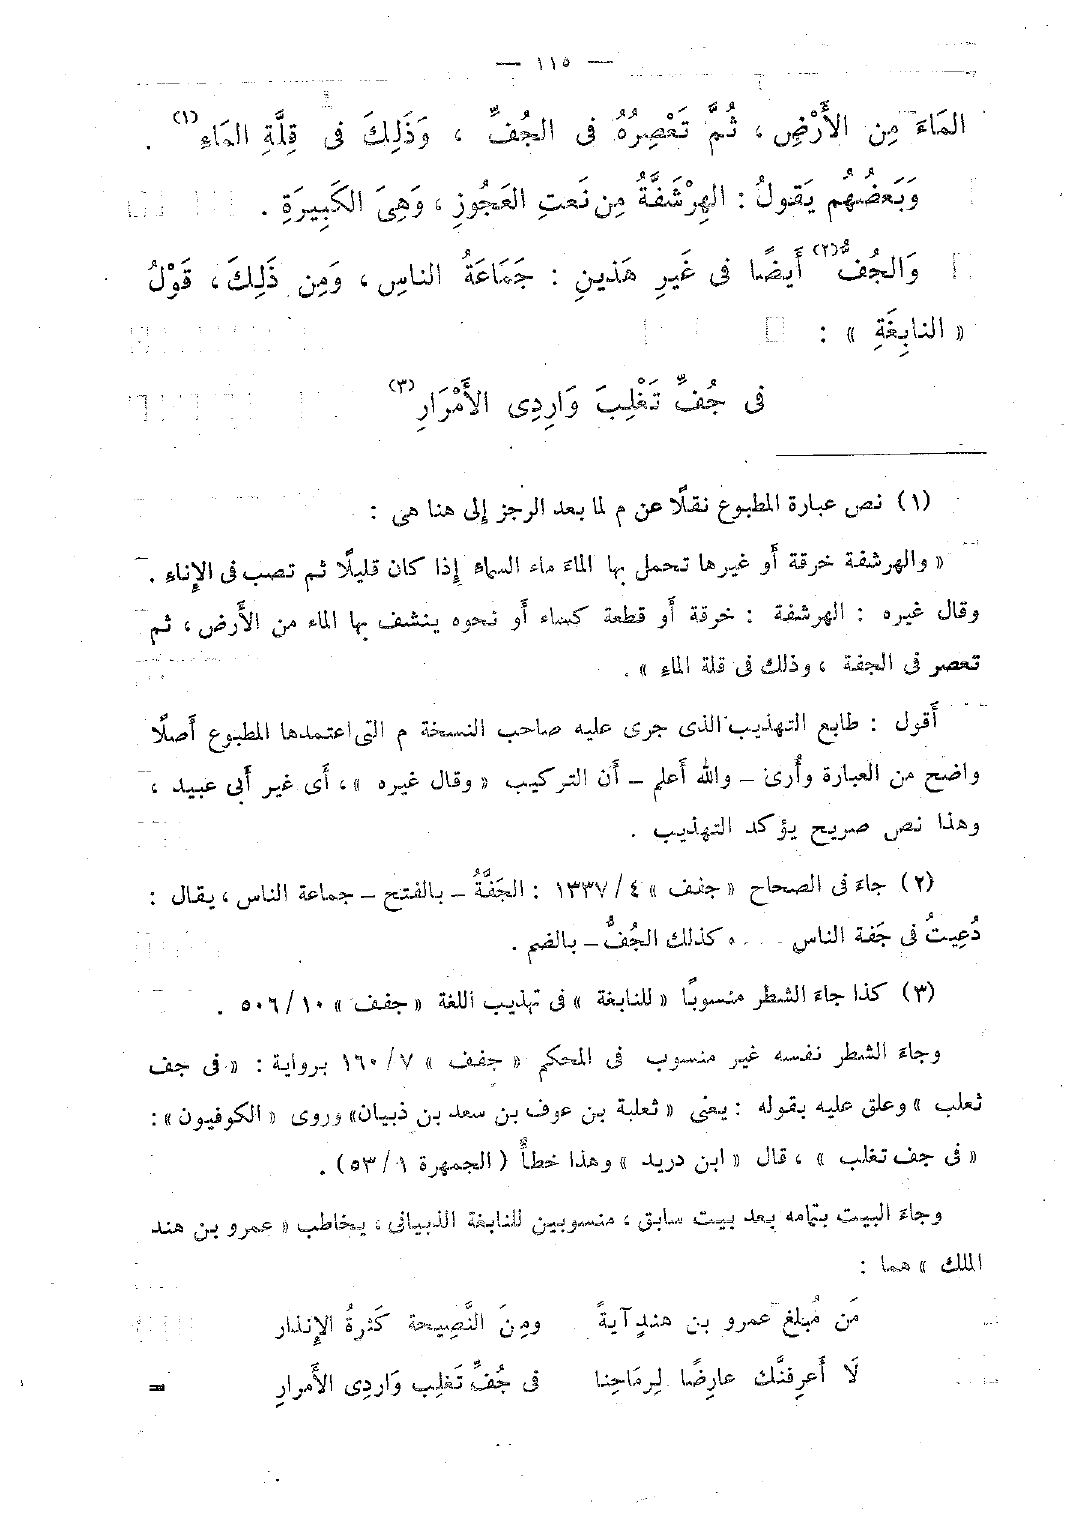 — ١١٥ —
المَاءَ مِن الأَرْضِ ، ثُمَّ تَعْصِرُهُ فى الجُفِّ ، وَذَلِكَ فى قِلَّةِ المَاءِ (١) .
وَبَعضُهُم يَقولُ : الهِرْشَفَّةُ مِن نَعتِ العَجُوزِ ، وَهِىَ الكَبِيرَةِ .
وَالجُفُّ (٢) أَيضًا فى غَيرِ هَذينِ : جَمَاعَةُ الناسِ ، وَمِن ذَلِكَ ، قَوْلُ
« النابِغَةِ » :
فى جُفِّ تَغْلِبَ وَارِدِى الأَمْرَارِ (٣)
(١) نص عبارة المطبوع نقلًا عن م لما بعد الرجز إلى هنا هى :
« والهرشفة خرقة أو غيرها تحمل بها الماء ماء السماء إذا كان قليلًا ثم تصب فى الإناء .
وقال غيره : الهرشفة : خرقة أو قطعة كساء أو نحوه ينشف بها الماء من الأرض ، ثم
تعصر فى الجفة ، وذلك فى قلة الماء » .
أقول : طابع التهذيب الذى جرى عليه صاحب النسخة م التى اعتمدها المطبوع أصلًا
واضح من العبارة وأرى – والله أعلم – أن التركيب « وقال غيره » ، أى غير أبى عبيد ،
وهذا نص صريح يؤكد التهذيب .
(٢) جاء فى الصحاح « جفف » ٤/ ١٣٣٧ : الجَفَّةُ – بالفتح – جماعة الناس ، يقال :
دُعِيتُ فى جَفة الناس .... وكذلك الجُفُّ – بالضم .
(٣) كذا جاء الشطر منسوبًا « للنابغة » فى تهذيب اللغة « جفف » ١٠/ ٥٠٦ .
وجاء الشطر نفسه غير منسوب فى المحكم « جفف » ٧/ ١٦٠ برواية : « فى جف
ثعلب » وعلق عليه بقوله : يعنى « ثعلبة بن عوف بن سعد بن ذبيان» وروى « الكوفيون » :
« فى جف تغلب » ، قال « ابن دريد » وهذا خطأٌ ( الجمهرة ١/ ٥٣) .
وجاء البيت بتمامه بعد بيت سابق ، منسوبين للنابغة الذبيانى ، يخاطب « عمرو بن هند
الملك » هما :
مَن مُبلغ عمرو بن هندٍ آيةً ومِنَ النَّصِيحة كَثرةُ الإنذار
لَا أَعرِفنَّك عارِضًا لِرمَاحِنا فى جُفِّ تَغلِب وَاردِى الأَمرارِ =